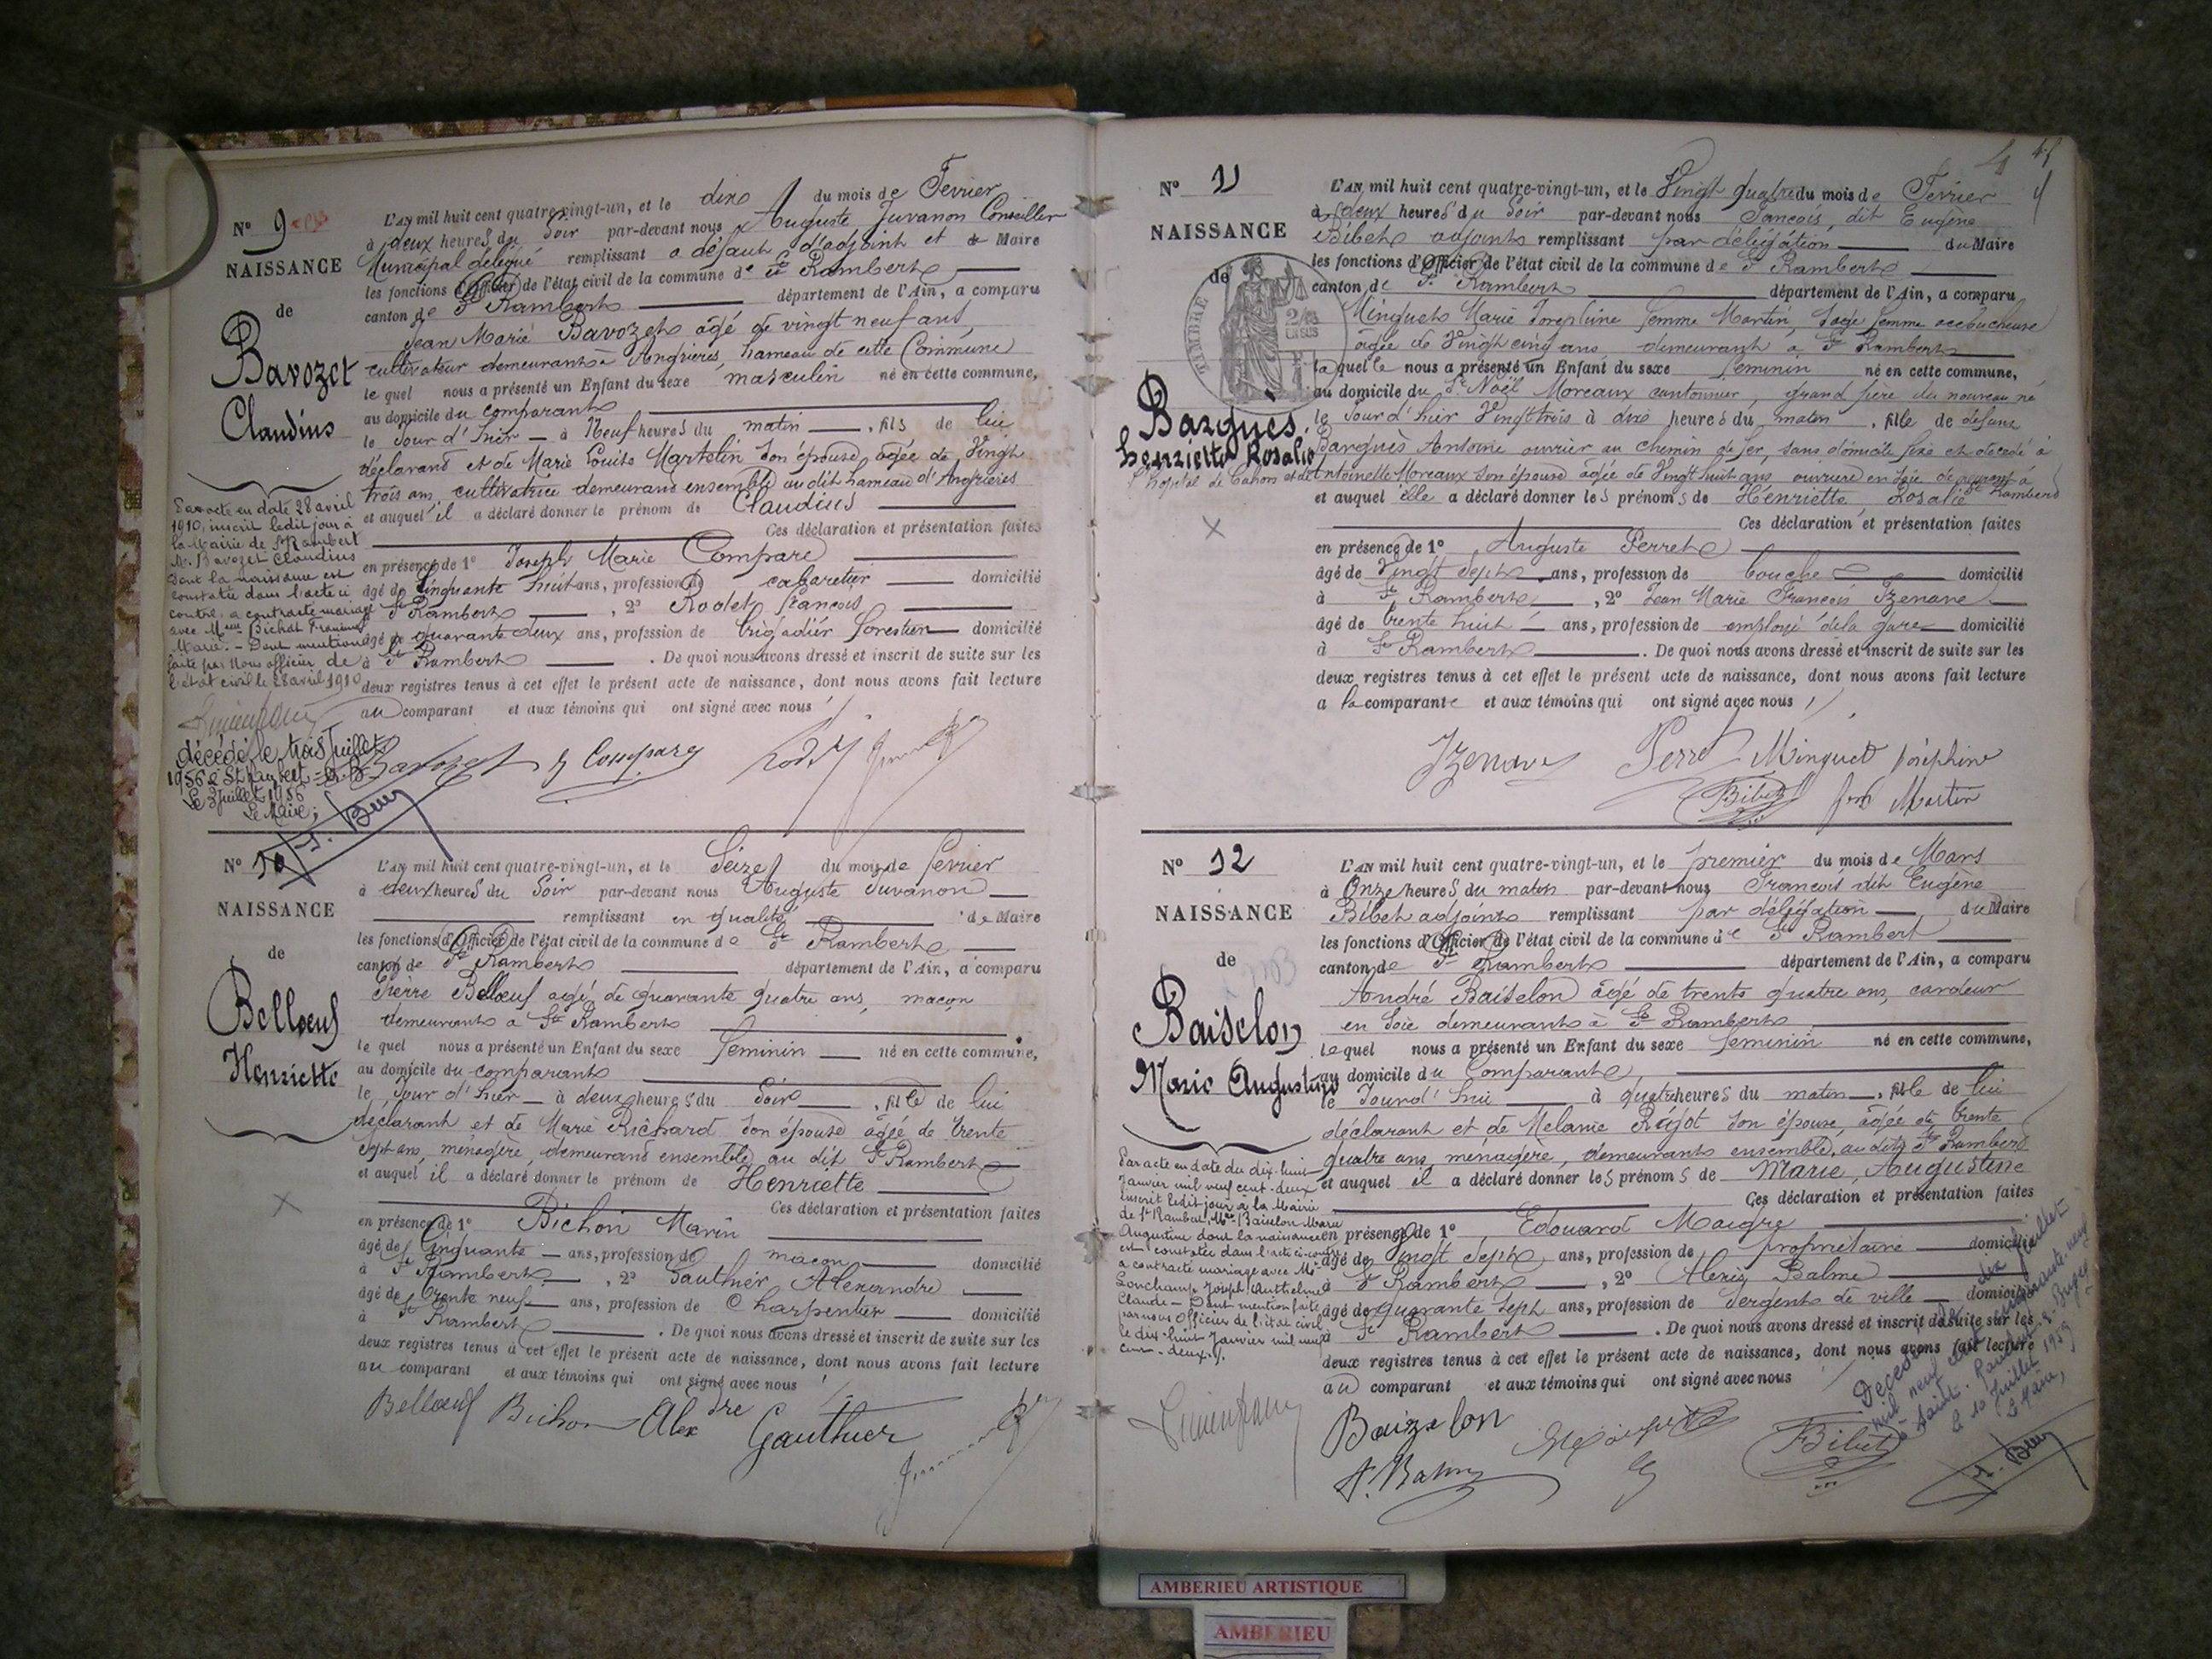 No 9
NAISSANCE
de
Bavozet
Claudius
L'AN mil huit cent quatre-vingt-un, et le dix du mois de Fevrier
à deux heures du Soir par-devant nous Auguste Juvanon Conseiller
Municipal délégué remplissant a défaut d'adjoint et de Maire
les fonctions d'Officier de l'état civil de la commune de St Rambert
canton de St Rambert département de l'Ain, a comparu
Jean Marie Bavozet âgé de vingt neuf ans,
cultivateur demeurant à Angrieres, hameau de cette Commune
le quel nous a présenté un Enfant du sexe masculin né en cette commune,
au domicile du comparant
le Jour d'hier à Neuf heures du matin, fils de lui
déclarant et de Marie Louise Martelin son épouse, agée de Vingt
trois ans, cultivatrice demeurant ensemble au dit hameau d'Angrieres
et auquel il a déclaré donner le prénom de Claudius
Ces déclaration et présentation faites
en présence de 1o Joseph Marie Compare
âgé de Cinquante huit ans, profession de cabaretier domicilié
à St Rambert, 2o Rodet François
âgé de quarante deux ans, profession de brigadier forestier domicilié
à St Rambert. De quoi nous avons dressé et inscrit de suite sur les
deux registres tenus à cet effet le présent acte de naissance, dont nous avons fait lecture
au comparant et aux témoins qui ont signé avec nous
Par acte en date 28 avril
1910, inscrit ledit jour à
la Mairie de St Rambert
Mr. Bavozet Claudius
dont la naissance est
constatée dans l'acte ci
contre, a contracté mariage
avec Melle Bichat
Marie. - Dont mention
faite par Nous officier de
l'état civil le 28 avril 1910
décédé le trois juillet
1956 à St Rambert
Le 3 juillet 1956
Le Maire;
Bavozet Compare
No 10
NAISSANCE
de
Bellœuf
Henriette
L'AN mil huit cent quatre-vingt-un, et le Seize du mois de fevrier
à deux heures du Soir par-devant nous Auguste Juvanon
remplissant en qualité de Maire
les fonctions d'Officier de l'état civil de la commune de St Rambert
canton de St Rambert département de l'Ain, a comparu
Pierre Bellœuf agé de quarante quatre ans, maçon
demeurant à St Rambert
le quel nous a présenté un Enfant du sexe féminin né en cette commune,
au domicile du comparant
le Jour d'hier à deux heures du Soir, fille de lui
déclarant et de Marie Richard son épouse agée de trente
sept ans, ménagère, demeurant ensemble au dit St Rambert
et auquel il a déclaré donner le prénom de Henriette
Ces déclaration et présentation faites
en présence de 1o Bichon Marin
âgé de Cinquante ans, profession de maçon domicilié
à St Rambert, 2o Gauthier Alexandre
âgé de trente neuf ans, profession de Charpentier domicilié
à St Rambert. De quoi nous avons dressé et inscrit de suite sur les
deux registres tenus à cet effet le présent acte de naissance, dont nous avons fait lecture
au comparant et aux témoins qui ont signé avec nous
Bellœuf Bichon Alexdre Gauthier
No 11
NAISSANCE
de
TIMBRE
Barguès
Henriette Rosalie
L'AN mil huit cent quatre-vingt-un, et le Vingt quatre du mois de Fevrier
à deux heures du Soir par-devant nous François, dit Eugène
Bibet adjoint remplissant par délégation du Maire
les fonctions d'Officier de l'état civil de la commune de St Rambert
canton de St Rambert département de l'Ain, a comparu
Minguet Marie Josephine femme Martin, sage femme accoucheuse
agée de Vingt cinq ans demeurant à St Rambert
laquelle nous a présenté un Enfant du sexe féminin né en cette commune,
au domicile du Sr Noël Moreaux cantonnier, grand père du nouveau né
le Jour d'hier Vingt trois à dix heures du matin, fille de défunt
Barguès Antoine ouvrier au chemin de fer, sans domicile fixe et décédé à
l'hopital de Cahors et de Antoinette Moreaux son épouse âgée de Vingt huit ans ouvrière en soie demeurant à
St Rambert
et auquel elle a déclaré donner les prénoms de Henriette, Rosalie
Ces déclaration et présentation faites
en présence de 1o Auguste Perret
âgé de Vingt sept ans, profession de boucher domicilié
à St Rambert, 2o Jean Marie François Izenave
âgé de trente huit ans, profession de employé de la gare domicilié
à St Rambert. De quoi nous avons dressé et inscrit de suite sur les
deux registres tenus à cet effet le présent acte de naissance, dont nous avons fait lecture
a la comparante et aux témoins qui ont signé avec nous
Izenave Perret Minguet Joséphine
Bibet fme Martin
No 12
NAISSANCE
de
Baiselon
Marie Augustine
L'AN mil huit cent quatre-vingt-un, et le premier du mois de Mars
à Onze heures du matin par-devant nous François dit Eugène
Bibet adjoint remplissant par délégation du Maire
les fonctions d'Officier de l'état civil de la commune de St Rambert
canton de St Rambert département de l'Ain, a comparu
André Baiselon âgé de trente quatre ans, cardeur
en Soie demeurant à St Rambert
lequel nous a présenté un Enfant du sexe féminin né en cette commune,
au domicile du Comparant
le Jourd'hui à quatre heures du matin, fille de lui
déclarant et de Melanie Réjot son épouse, agée de trente
quatre ans, ménagère, demeurant ensemble, au dit St Rambert
et auquel il a déclaré donner les prénoms de Marie, Augustine
Ces déclaration et présentation faites
en présence de 1o Edouard Maigre
âgé de Vingt Sept ans, profession de propriétaire domicilié
à St Rambert, 2o Alexis Balme
âgé de quarante Sept ans, profession de Sergent de ville domicilié
à St Rambert. De quoi nous avons dressé et inscrit de suite sur les
deux registres tenus à cet effet le présent acte de naissance, dont nous avons fait lecture
au comparant et aux témoins qui ont signé avec nous
Par acte en date du dix-huit
Janvier mil neuf cent-deux
inscrit ledit jour à la Mairie
de St Rambert, Melle Baiselon Marie
Augustine dont la naissance
est constatée dans l'acte ci-contre
a contracté mariage avec Mr
Lonchamp Joseph Anthelme
Claude - Dont mention faite
par nous officier de l'état civil
le dix-huit Janvier mil neuf
cent-deux.
Baizelon
A. Balme
Bibet
Décédée dix juillet
mil neuf cent cinquante-neuf
à Saint-Rambert-en-Bugey
le 10 Juillet 1959
Le Maire,
AMBERIEU ARTISTIQUE
AMBERIEU